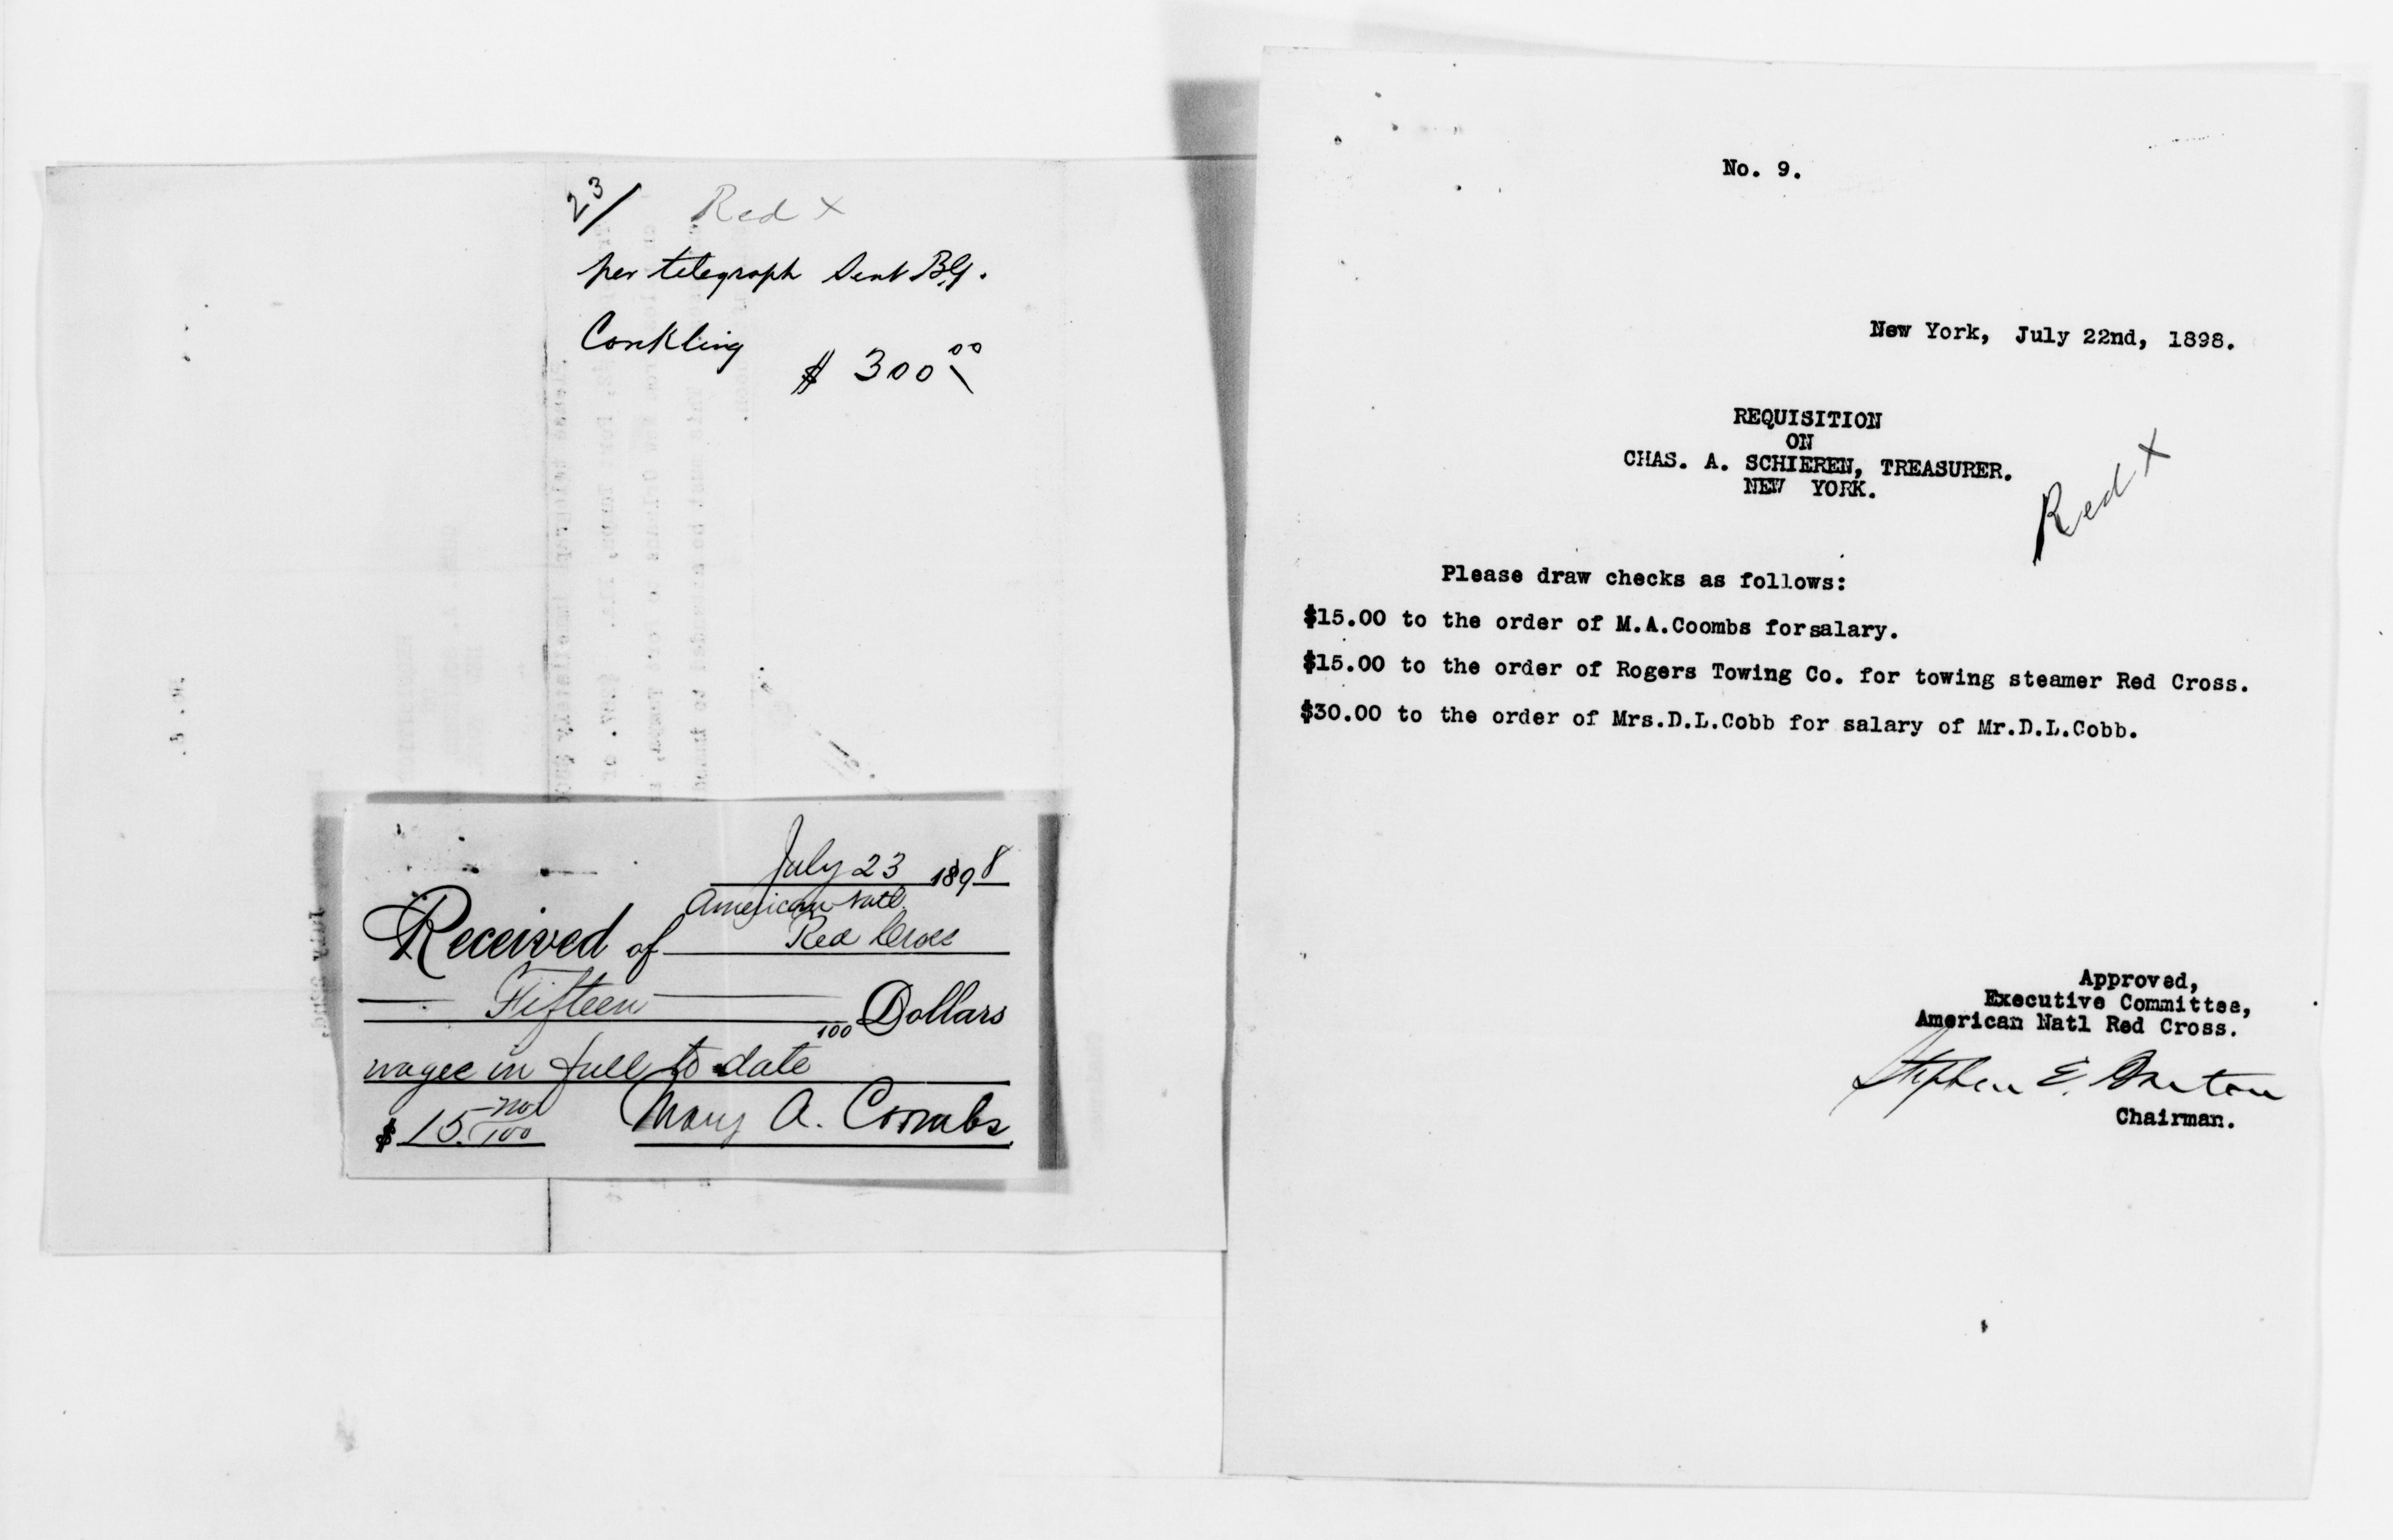 23/ Red X
per telegraph Sent B.G.
Conkling
$ 300 00
July 23 1898
American Natl.
Received of Red Cross
Fifteen 100 Dollars
wages in full to date
$ 15. no/100 Mary A. Coombs
No. 9.
New York, July 22nd, 1898.
REQUISITION
ON
CHAS. A. SCHIEREN, TREASURER.
NEW YORK.
Red X
Please draw checks as follows:
$15.00 to the order of M.A.Coombs forsalary.
$15.00 to the order of Rogers Towing Co. for towing steamer Red Cross.
$30.00 to the order of Mrs.D.L.Cobb for salary of Mr.D.L.Cobb.
Approved,
Executive Committee,
American Natl Red Cross.
Stephen E. Barton
Chairman.